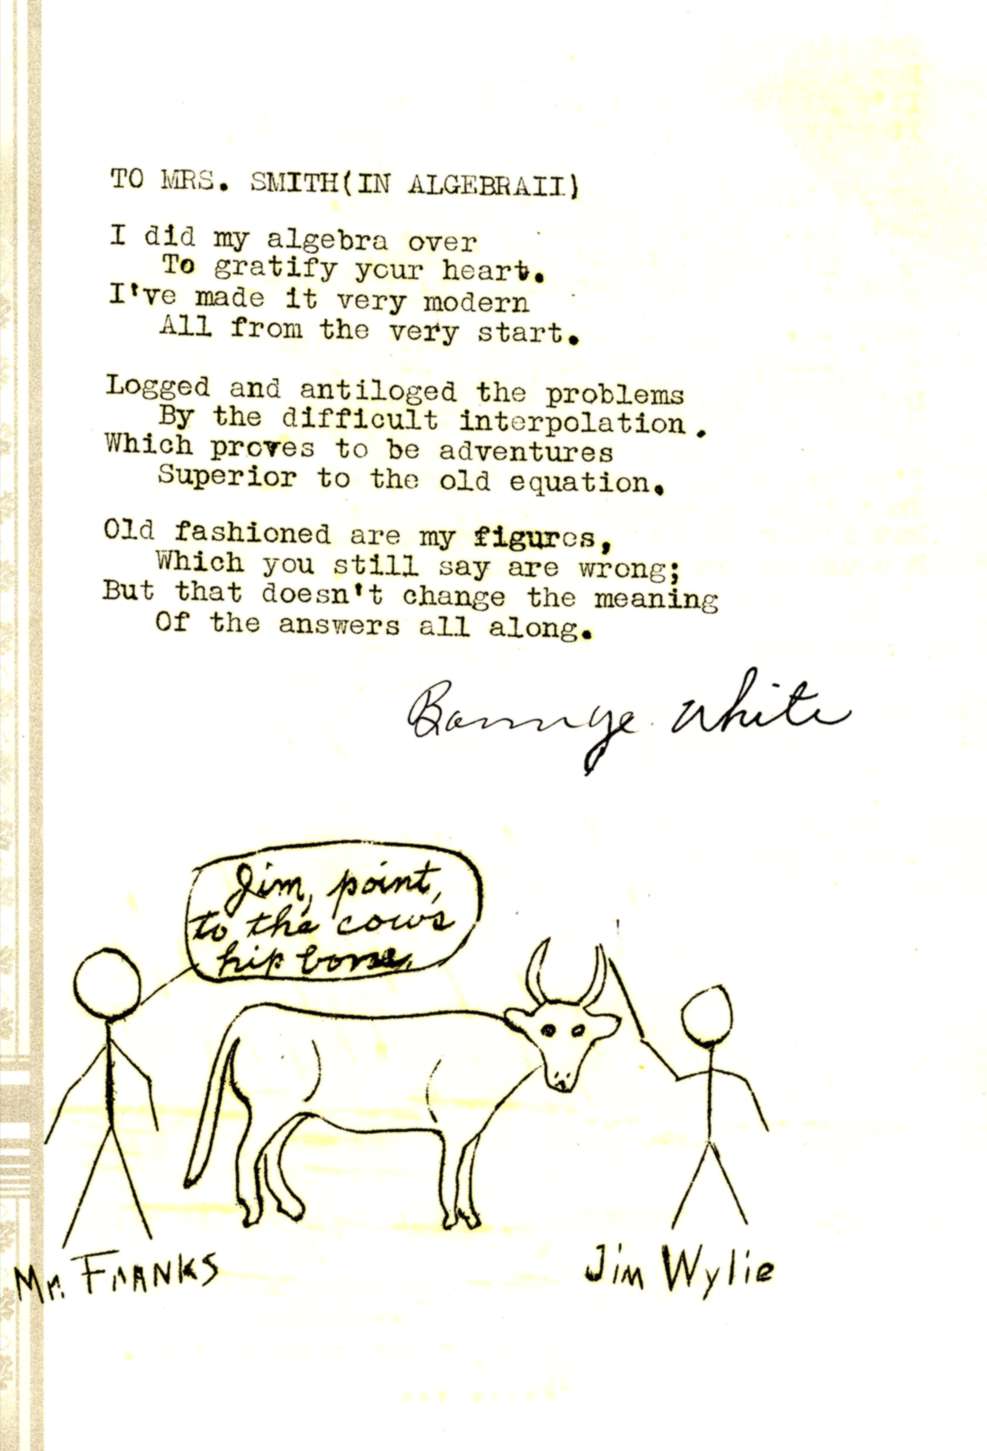 TO MRS. SMITH(IN ALGEBRAII)
I did my algebra over
To gratify your heart.
I've made it very modern
All from the very start.
Logged and antiloged the problems
By the difficult interpolation.
Which proves to be adventures
Superior to the old equation.
Old fashioned are my figures,
Which you still say are wrong;
But that doesn't change the meaning
Of the answers all along.
White
Jim, point,
to the cow's
hip bone.
Mr. Franks
Jim Wylie